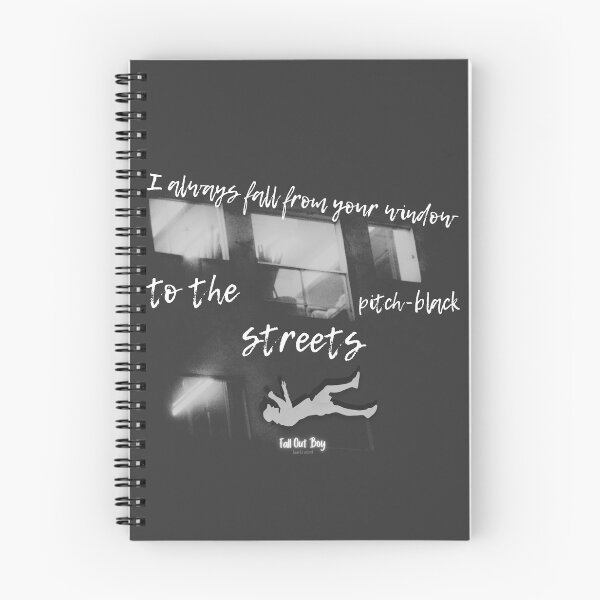 I always fall from your window
to the
pitch-black
streets
Fall Out Boy